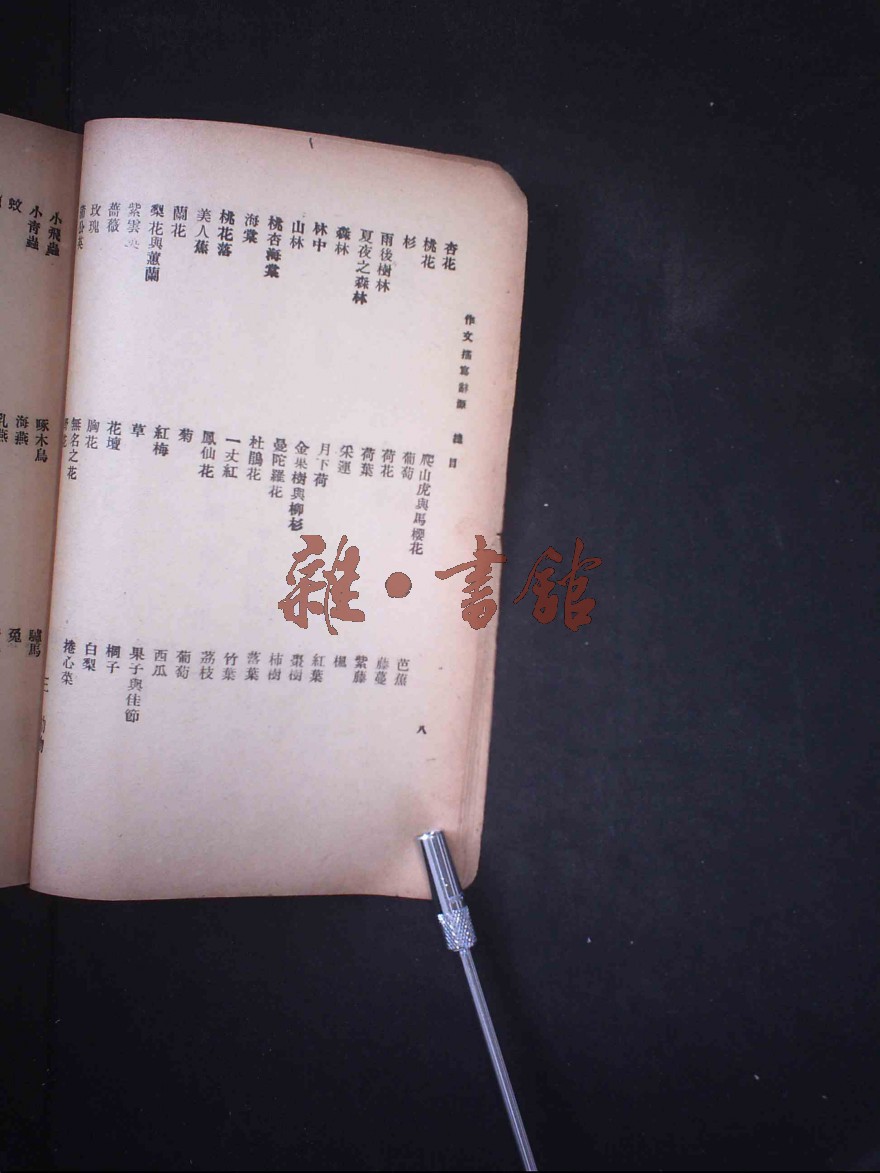 作文描寫辭源 總目
八
杏花
桃花
杉
雨後樹林
夏夜之森林
森林
林中
山林
桃杏海棠
海棠
桃花落
美人蕉
蘭花
梨花與蕙蘭
紫雲英
薔薇
玫瑰
蒲公英
爬山虎與馬櫻花
葡萄
荷花
荷葉
采蓮
月下荷
金果樹與柳杉
曼陀羅花
杜鵑花
一丈紅
鳳仙花
菊
紅梅
草
花壇
胸花
無名之花
芭蕉
藤蔓
紫藤
楓
紅葉
棗樹
柿樹
落葉
竹葉
荔枝
葡萄
西瓜
果子與佳節
橺子
白梨
捲心菜
三 動物
小飛蟲
小青蟲
蚊
啄木鳥
海燕
乳燕
驢馬
兔
雜·書館